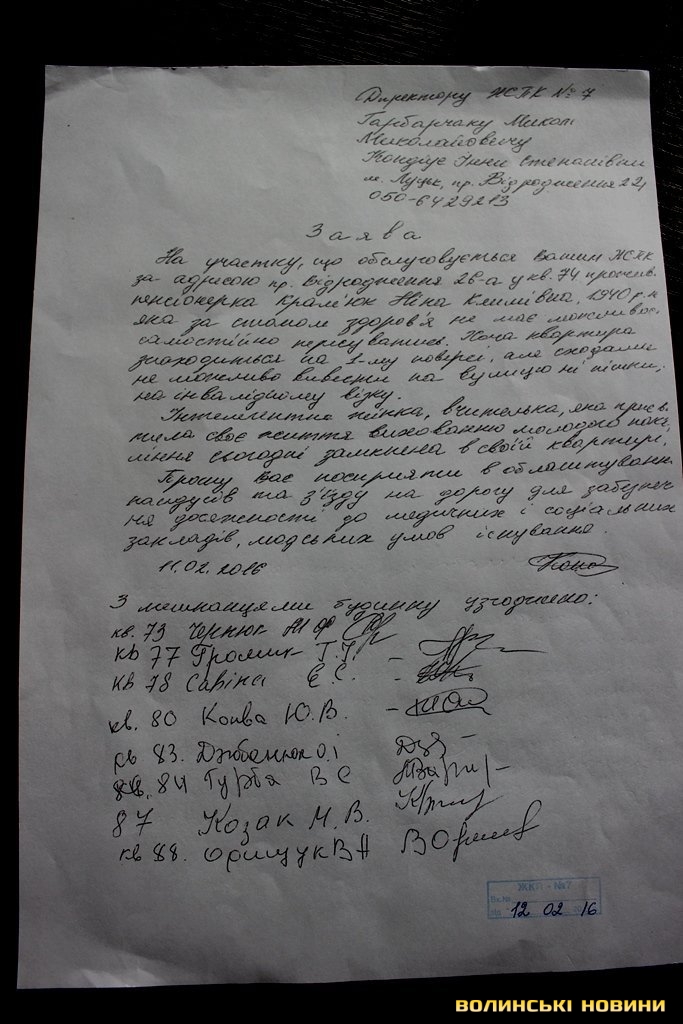 Директору ЖЕПК № 7
Гарбарчаку Миколі
Миколайовичу
Кондіус Інни Степанівни
м. Луцьк, пр. Відродження 22,
050-6429213
Заява
На участку, що обслуговується Вашим ЖЕПК
за адресою пр. Відродження 26-а у кв. 74 прожив.
пенсіонерка Крал'юк Ніна Климівна, 1940 р.н
яка за станом здоров'я не має можливос.
самостійно пересуватись. Хоча квартира
знаходиться на 1-му поверсі, але сходами
не можливо вивести на вулицю ні пішки,
на інвалідному візку.
Інтелегентна жінка, вчителька, яка присв.
тила своє життя вихованню молодого пок.
ління сьогодні замкнена в своїй квартирі,
Прошу Вас посприяти в облаштуванн.
пандусів та з'їзду на дорогу для забезпеч
ня досяжності до медичних і соціальних
закладів, людських умов існування.
11.02.2016
З мешканцями будинку узгоджено:
кв. 73 Чернюк
кв 77 Громик Т.І. -
кв 78 Савіна Є.С. -
кв. 80 Ю.В. -
кв 83. О.І
кв. 84 Гурба В С
87 Козак М. В.
кв 88. Орищук В Н
ЖКП - №7
Вх.№
12 02 16
ВОЛИНСЬКІ НОВИНИ